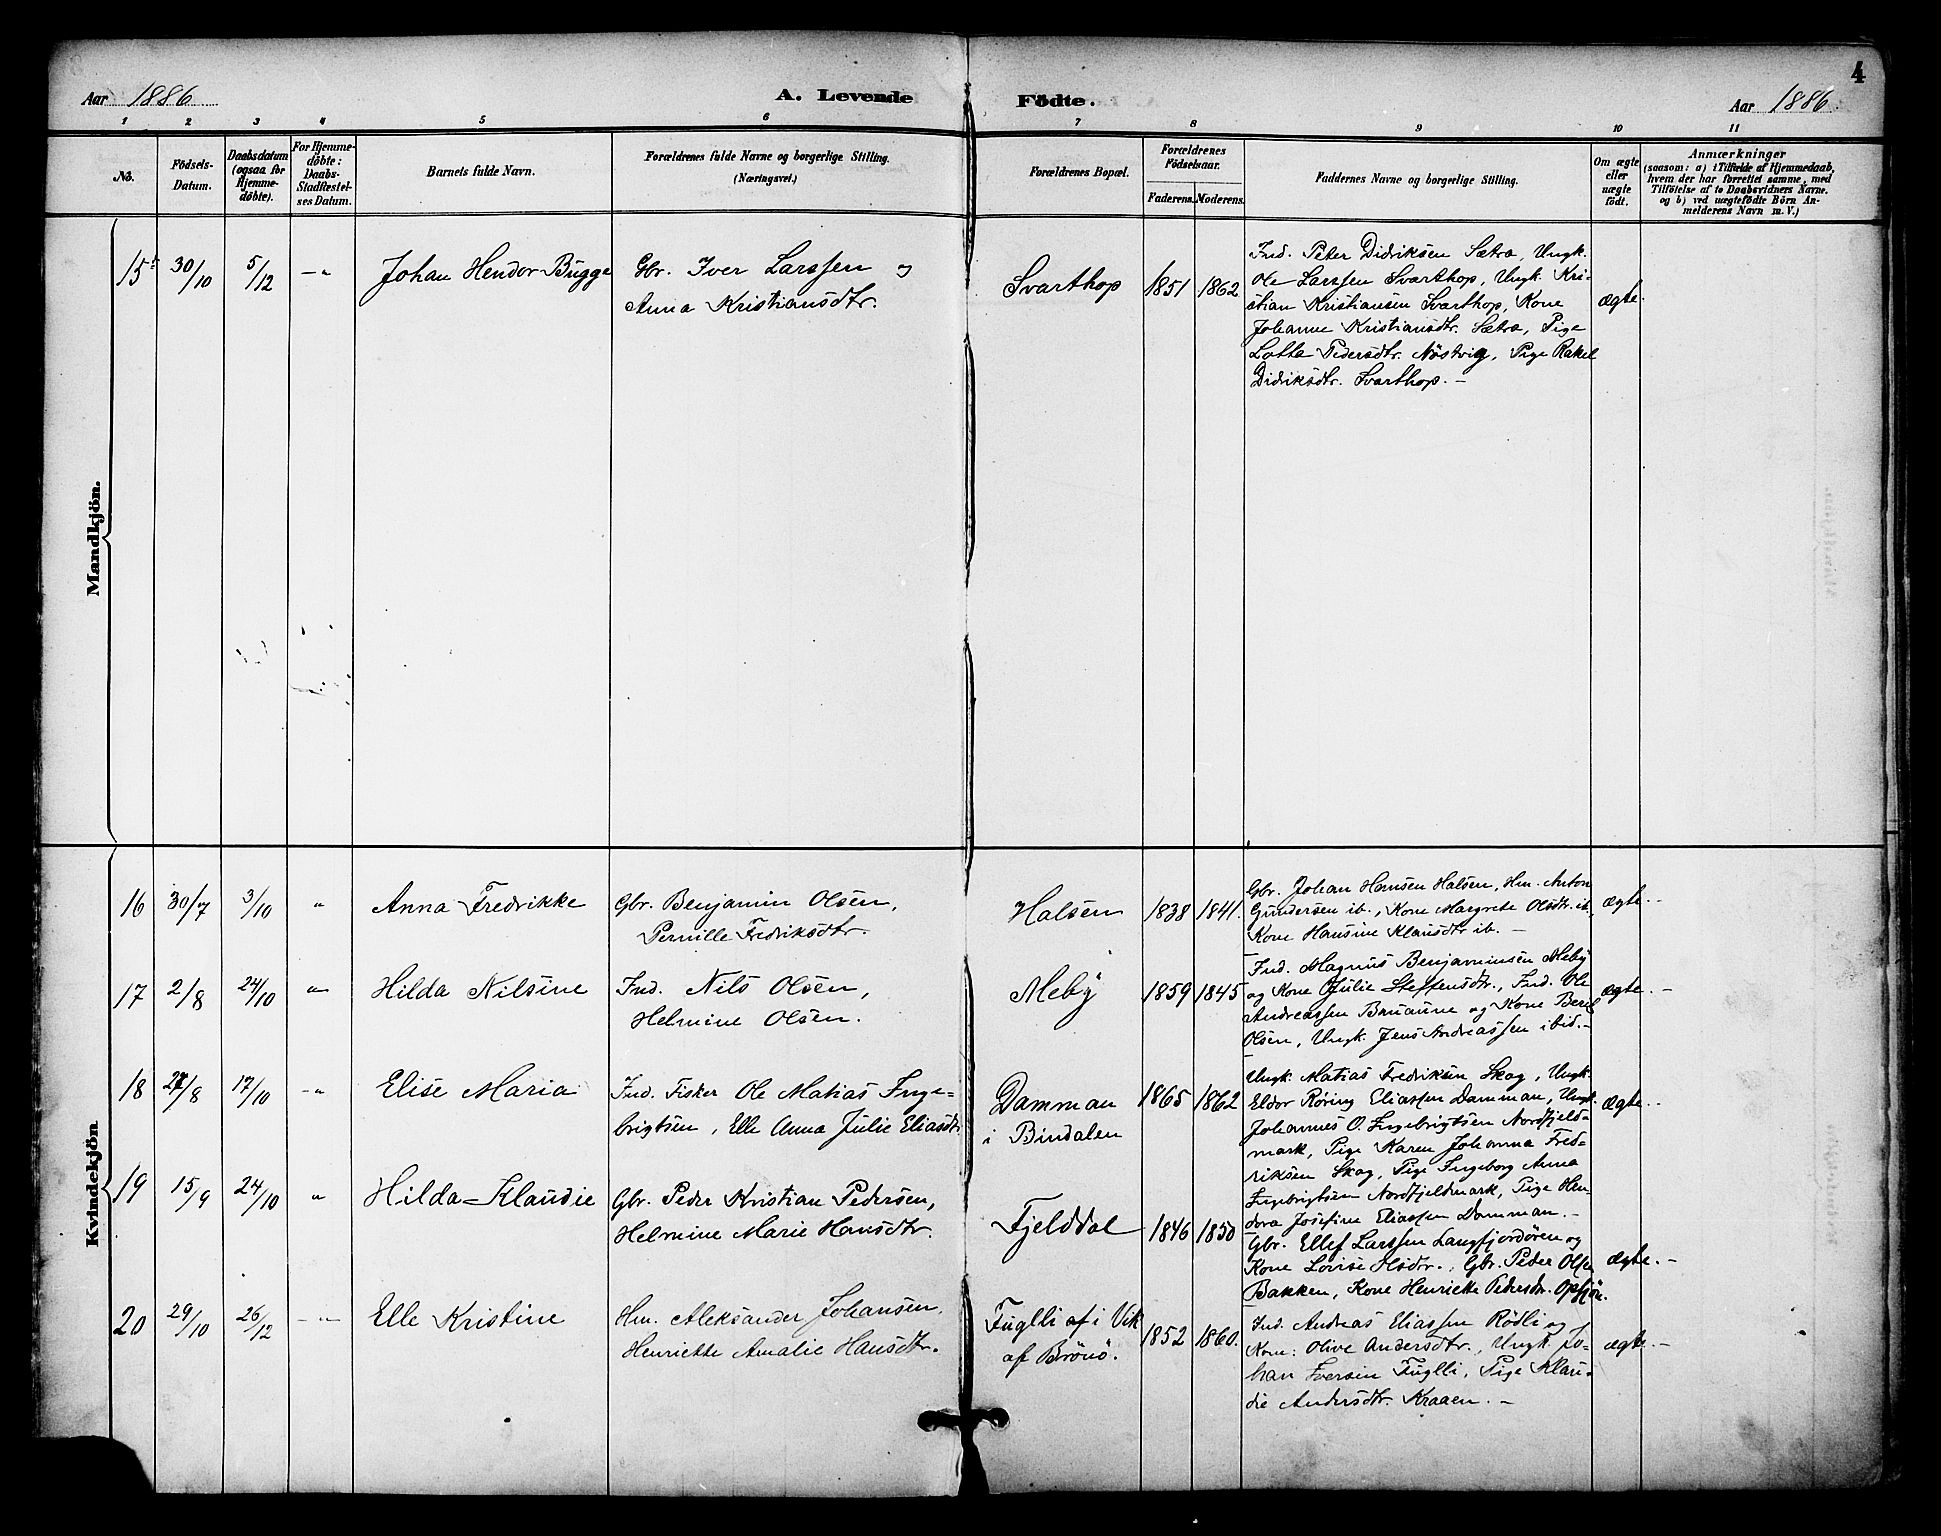 4
Aar 1886 A. Levende Födte. Aar 1886
1 2 3 4 5 6 7 8 9 10 11
No.
Födsels-
Datum.
Daabsdatum
(ogsaa for
Hjemme-
döbte).
For Hjemme-
døbte:
Daabs-
Stadfæstel-
ses Datum.
Barnets fulde Navn.
Forældrenes fulde Navne og borgerlige Stilling.
(Næringsvei.)
Forældrenes Bopæl.
Forældrenes
Fødselsaar.
Faderens. Moderens.
Faddernes Navne og borgerlige Stilling.
Om ægte
eller
uægte
födt.
Anmærkninger
(saasom: a) i Tilfælde af Hjemmedaab,
hvem der har forrettet samme, med
Tilföielse af to Daabsvidners Navne.
og b) ved uægtefödte Börn An-
melderens Navn m. V.)
Mandkjön.
15 30/10 5/12 -" Johan Hendor Bugge
Gbr. Iver Larssen og
Anna Kristiansdtr.
Svarthop 1851 1862
Ind. Peter Didriksen Sætra, Ungk.
Ole Larssen Svarthop, Ungk. Kri-
stian Kristiansen Svarthop, Kone
Johanne Kristiansdtr. Sætra, Pige
Lotte Pedersdtr. Nöstvig, Pige Rakel
Didriksdtr. Svarthop. -
ægte.
Kvindekjön
16 30/7 3/10 " Anna Fredrikke
Gbr. Benjamin Olsen,
Pernille Fredriksdtr.
Halsen 1838 1841.
Gbr. Johan Hansen Halsen, Hm. Anton
Gundersen ib., Kone Margrete Olsdtr. ib.
Kone Hansine Klausdtr ib. -
ægte.
17 2/8 24/10 " Hilda Nilsine
Ind. Nils Olsen,
Helmine Olsen.
Meby 1859 1845
Ind. Magnus Benjaminsen Meby
og Kone Julie Steffensdtr., Ind. Ole
Andreassen Bauaune og Kone Berel
Olsen, Ungk. Jens Andreassen ibid. -
ægte. -
18 27/8 17/10 -" Elise Maria
Ind. Fisker Ole Matias Inge-
brigtsen, Elle Anna Julie Eliasdtr.
Damman
i Bindalen
1865 1862
Ungk. Matias Fredriksen Skog, Ungk.
Eldor Röring Eliassen Damman, Ungk.
Johannes O. Ingebrigtsen Nordfjeld-
mark, Pige Karen Johanna Fred-
riksen Skog, Pige Ingeborg Anna
Ingebrigtsen Nordfjeldmark, Pige Hen-
dora Josefine Eliassen Damman. -
ægte.
19 15/9 24/10 " Hilda-Klaudie
Gbr. Peder Kristian Pedersen,
Helmine Marie Hansdtr.
Fjelddal 1846 1850
Gbr. Ellef Larssen Langfjordören og
Kone Lovise Olsdtr., Gbr. Peder Olsen
Bakken, Kone Henriette Pedersdtr. Opsjön.
ægte. -
20 29/10 26/12 -" Elle Kristine
Hm. Aleksander Johansen,
Henriette Amalie Hansdtr.
Fuglli af i Vik
af Brönö.
1852 1860.
Ind. Andreas Eliassen Rödli og
Kone: Olive Andersdtr., Ungk. Jo-
han Iversen Fuglli, Pige Klau-
die Andersdtr. Kraaen. -
ægte. -